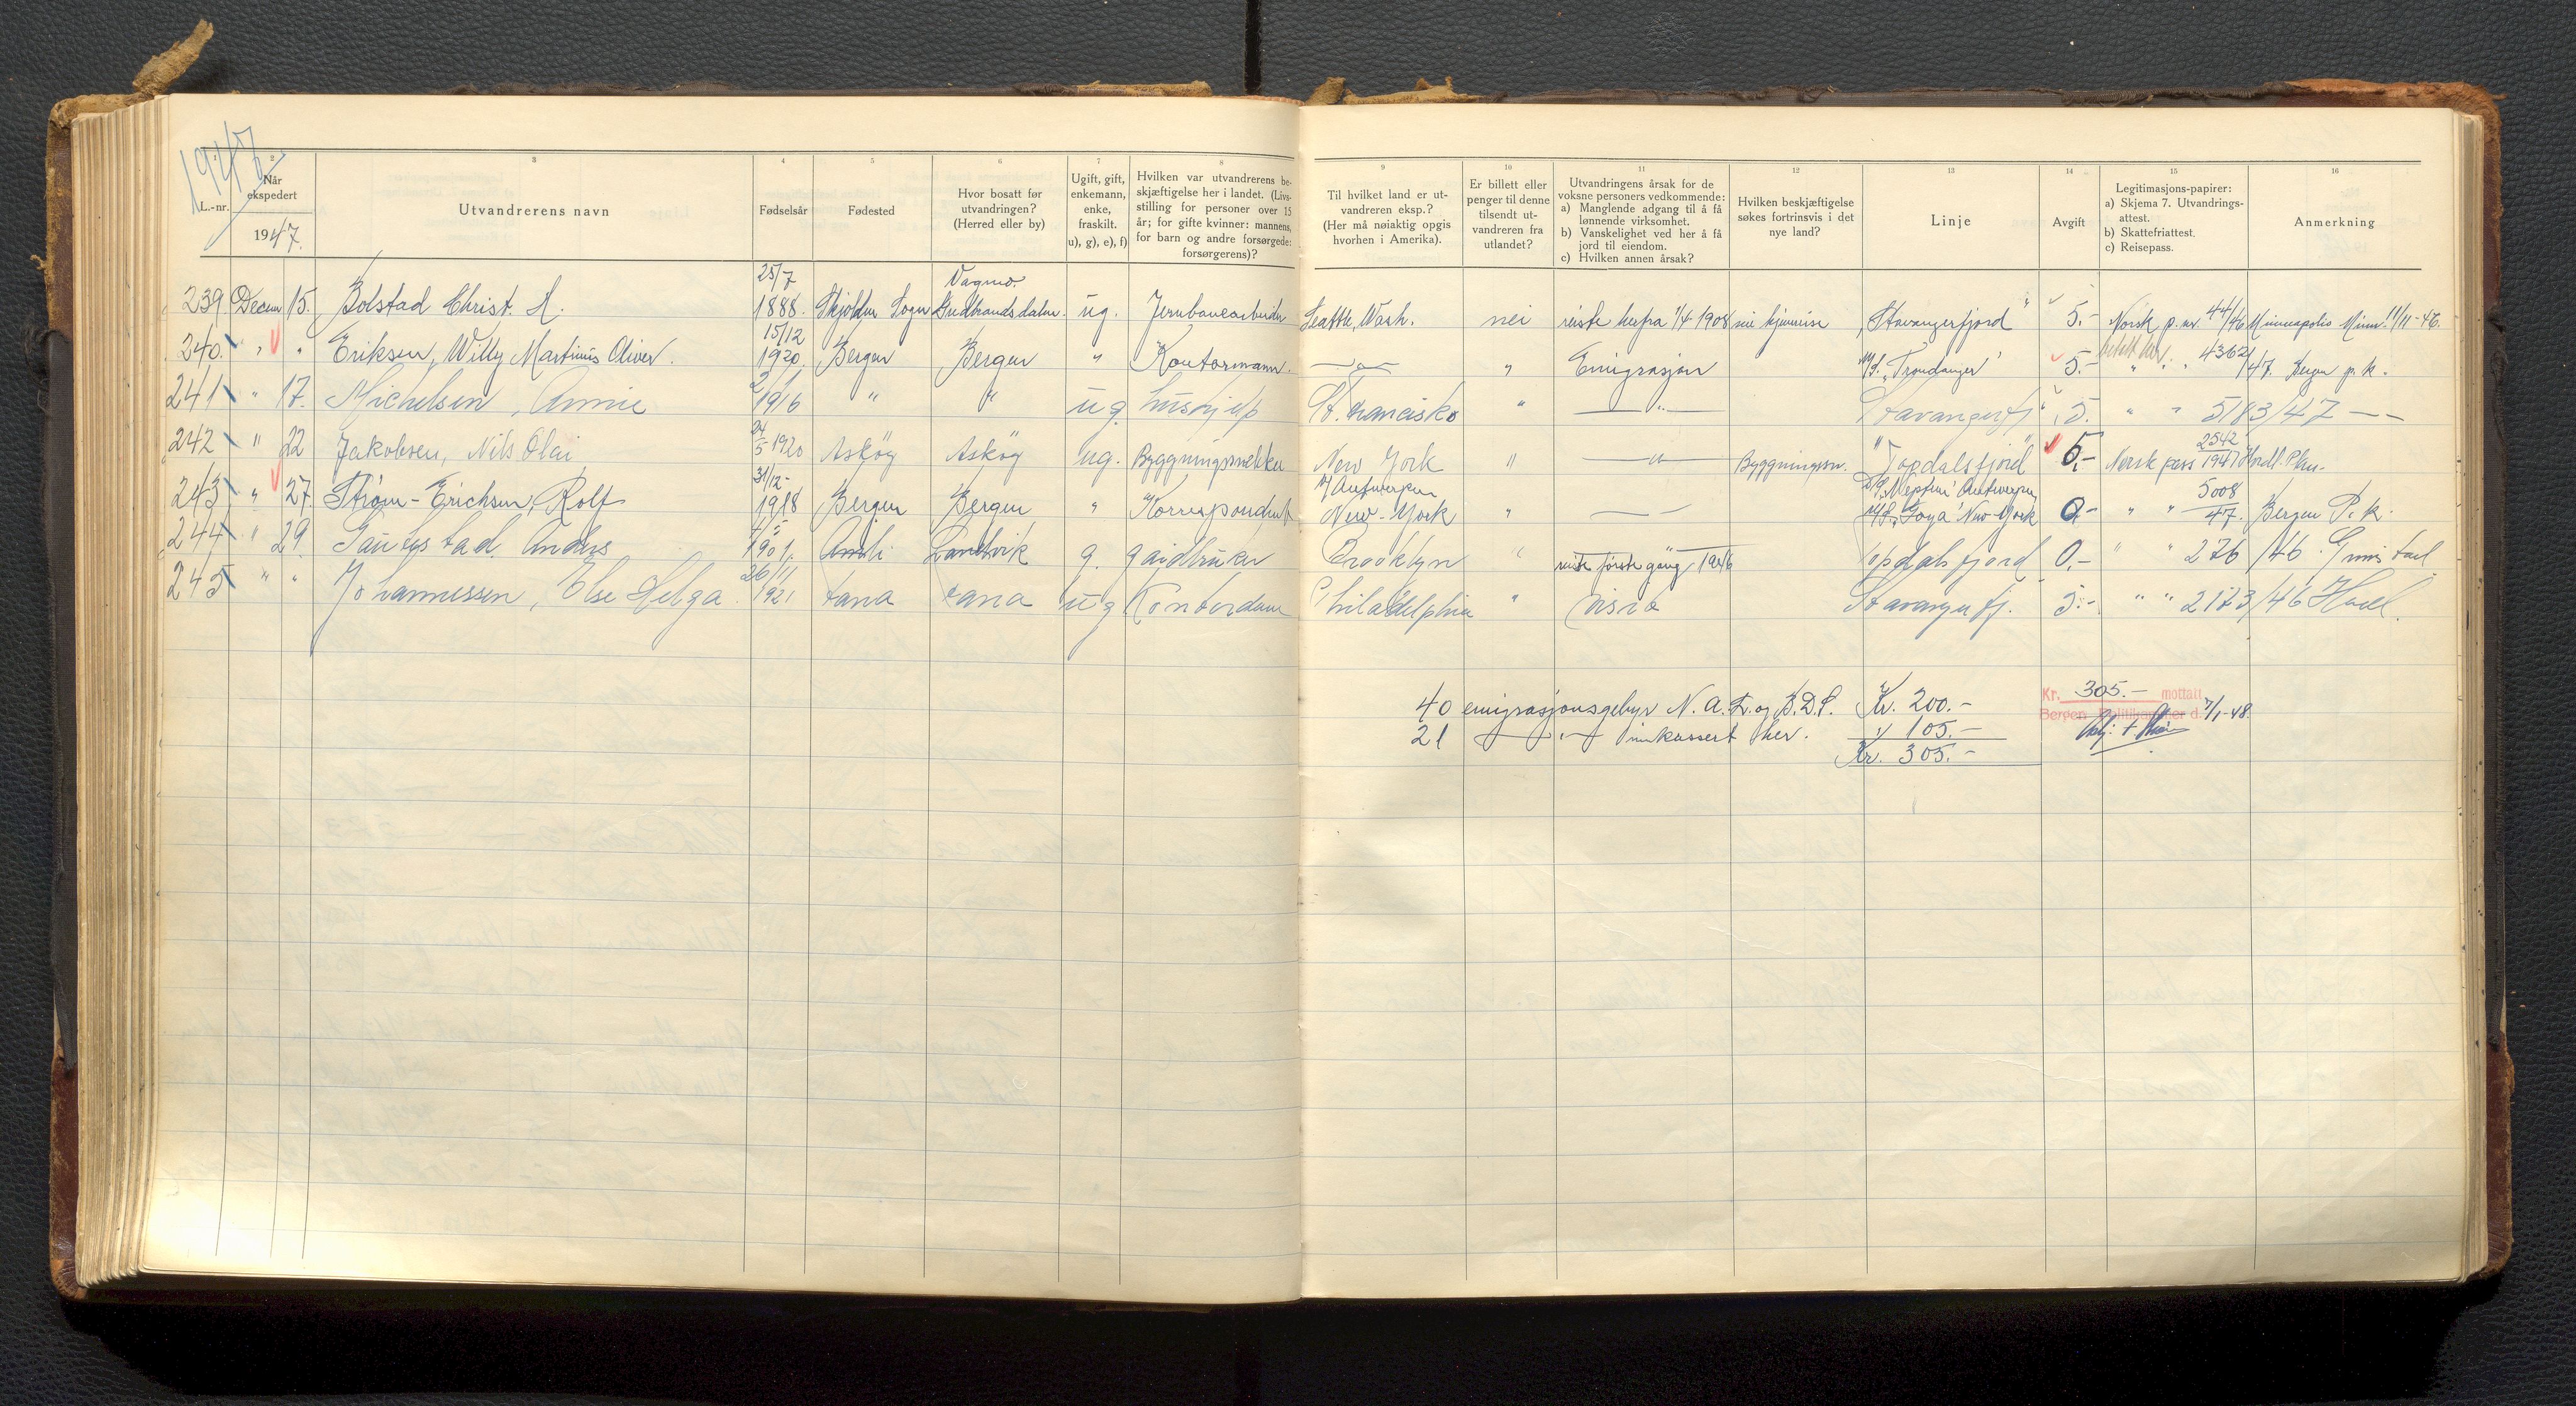 1947
1 2 3 4 5 6 7 8 9 10 11 12 13 14 15 16
L.-nr.
Når ekspedert
1947.
Utvandrerens navn
Fødselsår
Fødested
Hvor bosatt før utvandringen? (Herred eller by)
Ugift, gift, enkemann, enke, fraskilt. u), g), e), f)
Hvilken var utvandrerens beskjæftigelse her i landet. (Livsstilling for personer over 15 år; for gifte kvinner: mannens, for barn og andre forsørgede: forsørgerens)?
Til hvilket land er utvandreren eksp.? (Her må nøiaktig opgis hvorhen i Amerika).
Er billett eller penger til denne tilsendt utvandreren fra utlandet?
Utvandringens årsak for de voksne personers vedkommende:
a) Manglende adgang til å få lønnende virksomhet.
b) Vanskelighet ved her å få jord til eiendom.
c) Hvilken annen årsak?
Hvilken beskjæftigelse søkes fortrinsvis i det nye land?
Linje
Avgift
Legitimasjons-papirer:
a) Skjema 7. Utvandringsattest.
b) Skattefriattest.
c) Reisepass.
Anmerkning
239 Decem 15. Bolstad Christ. A. 25/7 1888. Skjolden Sogn Vågmo Gudbrandsdalen. ug. Jernbanearbeider Seattle, Wash. nei reiste herfra 1/4 1908 "Stavangerfjord" 5.- Norsk p. nr. 44/46 Minneapolis Minn. 11/11-46.
240. " " Eriksen, Willy Martinus Oliver. 15/12 1920. Bergen Bergen " Kontormann. —"— " Emigrasjon M/S. "Trondanger" 5.- betalt her. " " 4362/47. Bergen p.k.
241 " 17. Michelsen, Annie 2/1 1916 " " ug. hushjelp St. Francisko " —"— Stavangerfj. 5. " " 5183/47 — —
242 " 22 Jakobsen, Nils Olai 24/5 1920 Askøy Askøy ug. Byggningssnekker New York " —"— Byggningssn. "Topdalsfjord" 5,- Norsk pass 2542 1947 Hordl. P.km.
243 " 27. Strøm-Erichsen, Rolf 31/12- 1918 Bergen Bergen " Korrespondent v/ Antwerpen New-York " — — D/S. "Neptun" Antwerpen M/S. "Goya" New-York 0- " " 5008/47. Bergen P.k.
244 " 29. Anders 1901. Åmli Landvik g. gårdbruker Brooklyn " reiste første gang 1926 Topdalsfjord 0,- " " 276/46. Grimstad
245 " " Johannessen, Else Helga 26/11 1921 Fana Fana ug Kontordame Philadelphia " Stavangerfj. 5.- " " 2173/46 Hord.
40 emigrasjonsgebyr N.A.L. og B.D.S. Kr. 200.-
21 —"— innkassert her. " 105.-
Kr. 305.-
Kr. 305.- mottatt
Bergen Politikammer d. 7/1-48